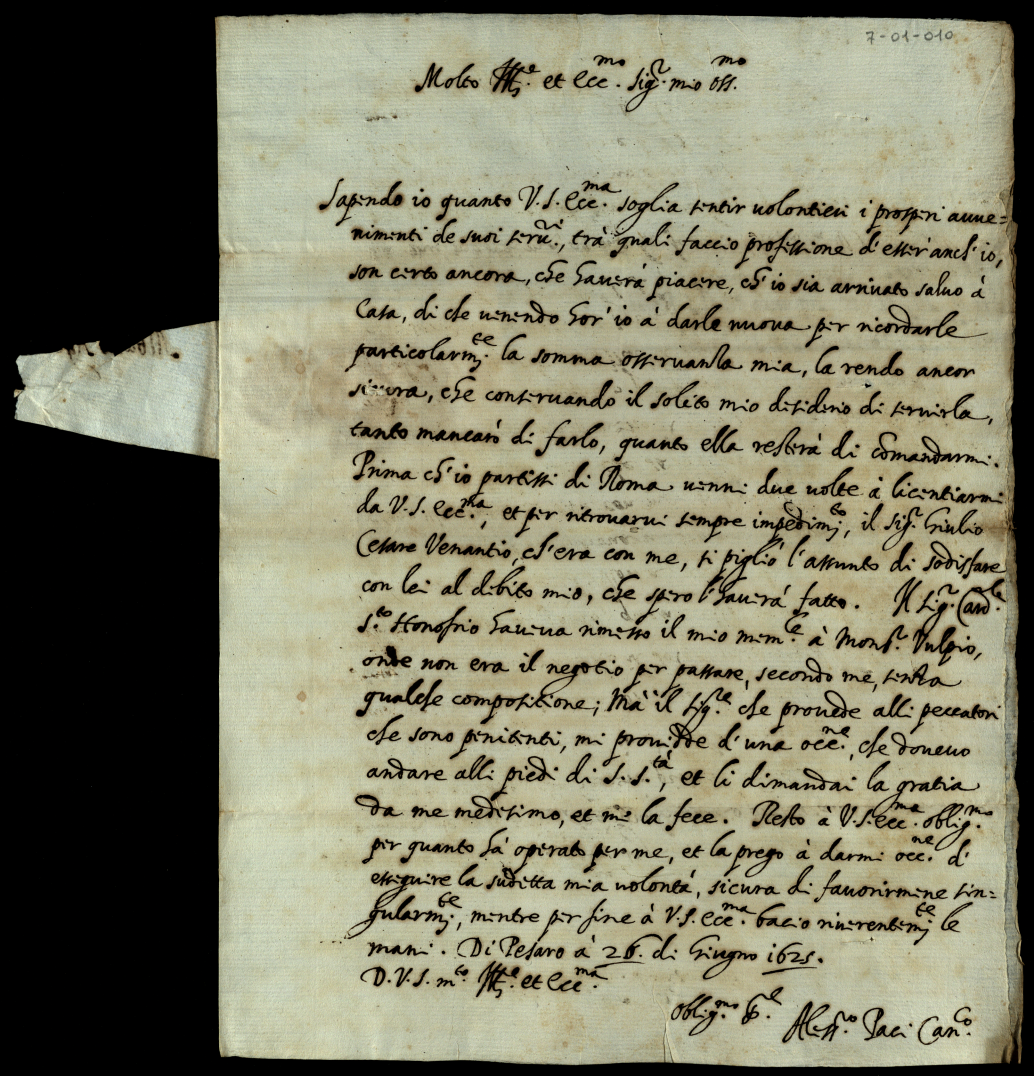 7-01-010
Molto Ill.e et Ecc.mo Sig.r mio Oss.mo
Sapendo io quanto V.S. Ecc.ma soglia sentir volontieri i prosperi avve=
nimenti de suoi ser.ri, trà quali faccio professione d'esser anch'io,
son certo ancora, che haverà piacere, ch'io sia arrivato salvo à
Casa, di che venendo hor'io à darle nuova per ricordarle
particolarm.te la somma osservanza mia, la rendo ancor
sicura, che conservando il solito mio desiderio di servirla,
tanto mancarò di farlo, quanto ella resterà di comandarmi.
Prima ch'io partissi di Roma venni due volte à licentiarmi
da V.S. Ecc.ma, et per ritrovarvi sempre impedim.to, il Sig.r Giulio
Cesare Venantio, ch'era con me, si pigliò l'assunto di sodisfare
con lei al debito mio, che spero l'haverà fatto. Il Sig.r Card.le
S.to Honofrio haveva rimesso il mio mem.le à Mons.r Vulpio,
onde non era il negotio per passare, secondo me, senza
qualche compositione; Mà il Sig.re che provede alli peccatori
che sono penitenti, mi providde d'una occ.ne, che dovevo
andare alli piedi di S. S.tà, et li dimandai la gratia
da me medesimo, et me la fece. Resto à V.S. Ecc.ma oblig.mo
per quanto hà operato per me, et la prego à darmi occ.ne d'
esseguire la sudetta mia volontà, sicura di favorirmene sin=
gularm.te, mentre per fine à V.S. Ecc.ma bacio riverentem.te le
mani. Di Pesaro à 26. di Giugno 1625.
D. V.S. m.to Ill.e et Ecc.ma
Oblig.mo S.re
Aless.ro Paci Can.co